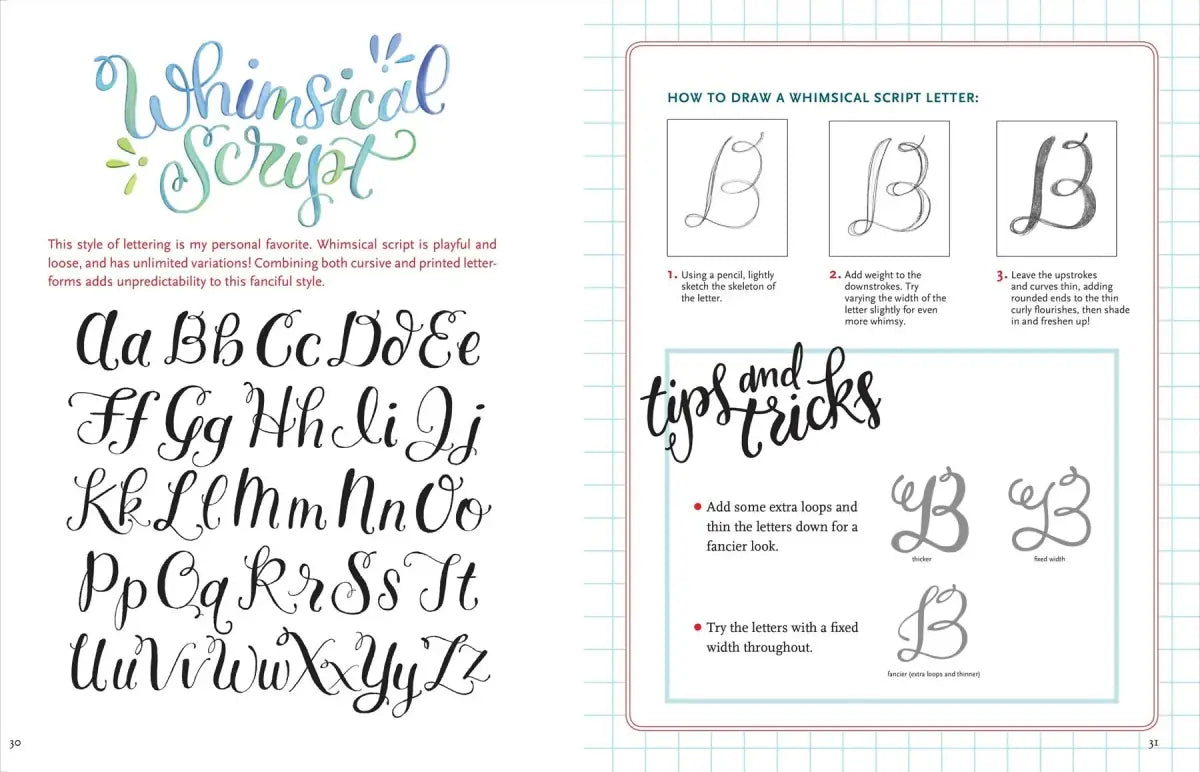 Whimsical
Script
This style of lettering is my personal favorite. Whimsical script is playful and
loose, and has unlimited variations! Combining both cursive and printed letter-
forms adds unpredictability to this fanciful style.
Aa Bb Cc Dd Ee
Ff Gg Hh Ii Jj
Kk Ll Mm Nn Oo
Pp Qq Rr Ss Tt
Uu Vv Ww Xx Yy Zz
30
HOW TO DRAW A WHIMSICAL SCRIPT LETTER:
B
B
B
1. Using a pencil, lightly
sketch the skeleton of
the letter.
2. Add weight to the
downstrokes. Try
varying the width of the
letter slightly for even
more whimsy.
3. Leave the upstrokes
and curves thin, adding
rounded ends to the thin
curly flourishes, then shade
in and freshen up!
tips and
tricks
Add some extra loops and
thin the letters down for a
fancier look.
B
thicker
B
fixed width
Try the letters with a fixed
width throughout.
B
fancier (extra loops and thinner)
31